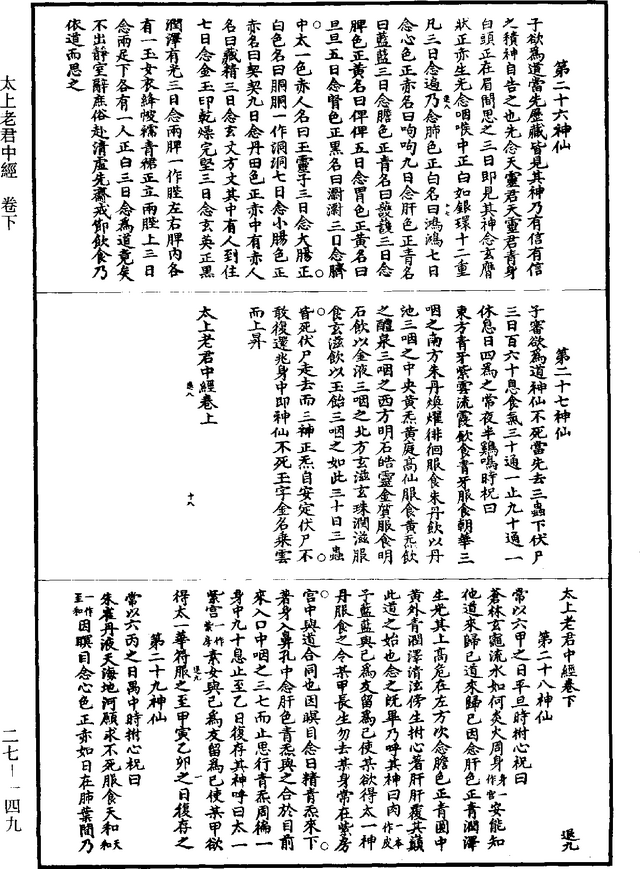 太上老君中經 卷下
二七─一四九
第二十六神仙
子欲為道當先歷藏皆見其神乃有信有信
之積神自告之也先念天靈君天靈君青身
白頭正在眉間思之三日即見其神念玄膺
狀正赤生光念咽喉中正白如銀環十二重
凡三日念遍乃念肺色正白名曰鴻鴻七日
念心色正赤名曰呴呴九日念肝色正青名
曰藍藍三日念膽色正青名曰護護三日念
脾色正黃名曰俾俾五日念胃色正黃名曰
旦旦五日念腎色正黑名曰㵎㵎三日念臍
中太一色赤人名曰玉靈子三日念大腸正
白色名曰胴胴一作洞洞七日念小腸色正
赤名曰契契九日念丹田色正赤中有赤人
名曰藏精三日念玄丈方丈其中有人到住
七日念金玉印乾燥完堅三日念玄英正黑
潤澤有光三日念兩脾一作䏶左右脾內各
有一玉女衣絳帔襦青裙正立兩䏶上三日
念兩足下各有一人正白三日念為道竟矣
不出靜室辭庶俗赴清虛先齋戒節飲食乃
依道而思之
第二十七神仙
子審欲為道神仙不死當先去三蟲下伏尸
三日百六十息食氣三十通一止九十通一
休息日四為之常夜半雞鳴時祝曰
東方青牙紫雲流霞飲食青牙服食朝華三
咽之南方朱丹煥燿徘徊服食朱丹飲以丹
池三咽之中央黃炁黃庭高仙服食黃炁飲
之醴泉三咽之西方明石皓靈金質服食明
石飲以金液三咽之北方玄滋玄珠潤滋服
食玄滋飲以玉飴三咽之如此三十日三蟲
皆死伏尸走去而三神正炁自安定伏尸不
敢復還兆身中即神仙不死玉字金名乘雲
而上昇
太上老君中經卷上
退八 十八
太上老君中經卷下 退九
第二十八神仙
常以六甲之日平旦時拊心祝曰
蒼林玄龜流水如何炎火周身身一作宮安能知
他道來歸己道來歸己因念肝色正青潤澤
生光其上高危在左方次念膽色正青圓中
黃外青潤澤清泫傍生拊心著肝肝覆其巔
此道之始也念之既畢乃呼其神曰肉一本作皮
子藍藍與己為友留為己使某欲得太一神
丹服食之令某甲長生勿去某身常在紫房
宮中與道合同也因瞑目念日精青炁來下
著身入鼻孔中念肝色青炁與之合於目前
來入口中咽之三七而止思行青炁周徧一
身中九十息止至乙日復存其神呼曰太一
紫宮一作紫房素女與己為友留為己使某甲欲
得太一華符服之至甲寅乙卯之日復存之
第二十九神仙
常以六丙之日禺中時拊心祝曰
朱雀丹液天海地河願求不死服食天和天和
一作至和因瞑目念心色正赤如日在肺葉間乃